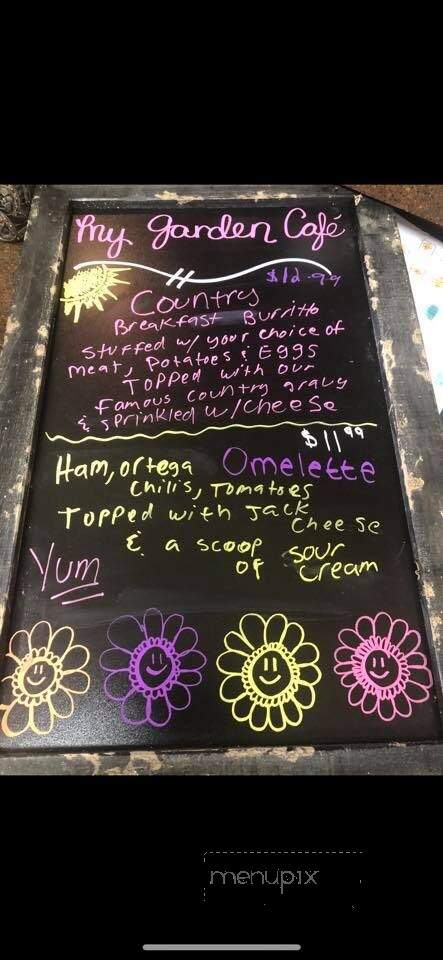 My Garden Café
$12.99
Country
Breakfast Burrito
Stuffed w/ your choice of
meat, Potatoes & Eggs
Topped with our
famous country gravy
& sprinkled w/cheese
$11.99
Ham, ortega Omelette
Chilis, Tomatoes
Topped with Jack
Cheese
& a scoop
of sour
cream
Yum
menupix